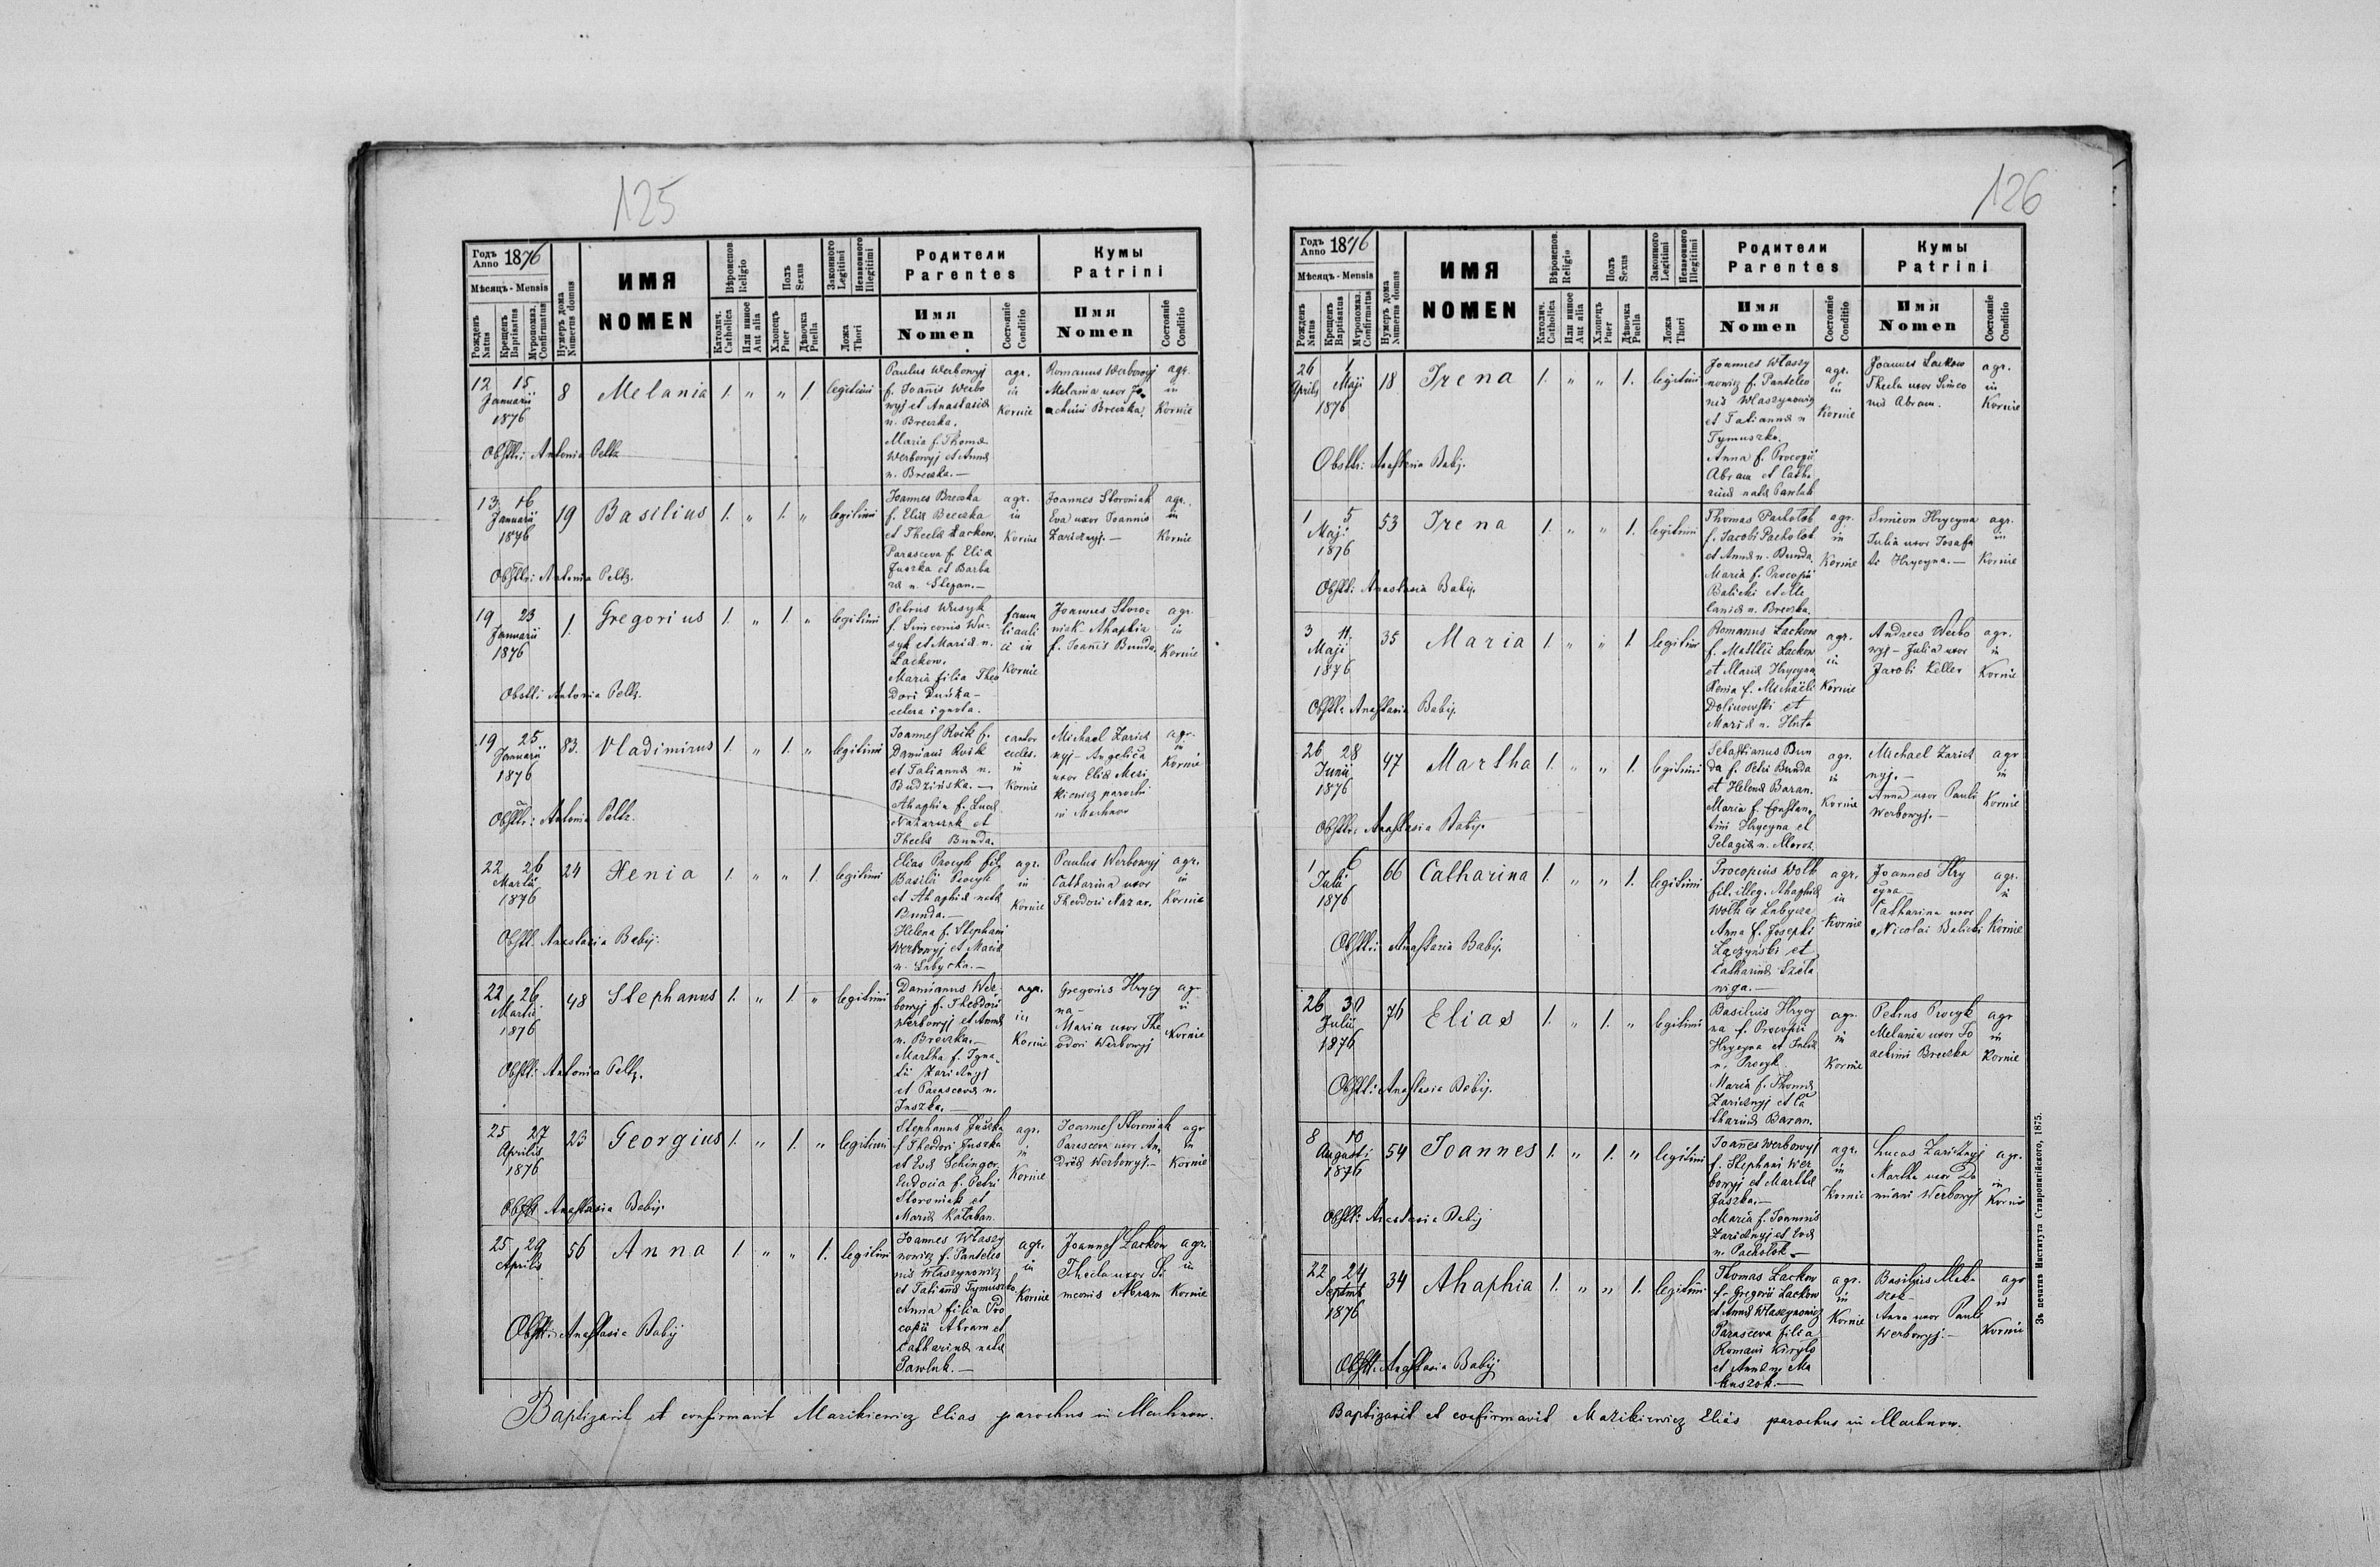 125
Годъ Anno 1876
Мѣсяцъ - Mensis
Рожденъ Natus
Крещенъ Baptisatus
Мѵропомаз. Confirmatus
Нумеръ дома Numerus domus
ИМЯ
NOMEN
Вѣроиспов. Religio
Католич. Catholica
Или инное Aut alia
Полъ Sexus
Хлопецъ Puer
Дѣвочка Puella
Законного Legitimi
Незаконного Illegitimi
Ложа Thori
Родители
Parentes
Имя
Nomen
Состояніе Conditio
Кумы
Patrini
Имя
Nomen
Состояніе Conditio
12 15 Januarii 1876
8
Melania
1. " " 1
legitimi
Paulus Werbowyj
f. Joannis Werbo
wyj et Anastasiæ
n. Breczka.
Maria f. Thomæ
Werbowyj et Annæ
n. Breczka. —
agr. in Kornie
Romanus Werbowyj
Melania uxor Jo
achimi Breczka.
agr. in Kornie
Obsttr: Antonia Peltz
13 16 Januarii 1876
19
Basilius
1. " 1. "
legitimi
Joannes Breczka
f. Eliæ Breczka
et Theclæ Lackow.
Parasceva f. Eliæ
Juszka et Barba
ræ n. Stepan. —
agr. in Kornie
Joannes Storoniak
Eva uxor Joannis
Zaricznyj. —
agr. in Kornie
Obsttr: Antonia Peltz.
19 23 Januarii 1876
1.
Gregorius
1. " 1. "
legitimi
Petrus Wusyk
f. Simeonis Wu-
syk et Mariæ n.
Lackow.
Maria filia Theo
dori Duńka —
cetera ignota.
in Kornie
Joannes Storo-
niak - Ahaphia
f. Joannis Bunda.
agr. in Kornie
Obsttr: Antonia Peltz.
19 25 Januarii 1876
83.
Vladimirus
1. " 1. "
legitimi
Joannes Kwik f.
Damiani Kwik
et Tatiannæ n.
Budzińska. —
Ahaphia f. Lucæ
Nazarczuk et
Theclæ Bunda.
cantor eccles. in Kornie
Michael Zaricz
nyj - Angelica
uxor Eliæ Mari
kiewicz parochi
in Machnow
agr. in Kornie
Obsttr: Antonia Peltz.
22 26 Martii 1876
24
Xenia
1. " " 1.
legitimi
Elias Procyk fil.
Basilii Procyk
et Ahaphiæ natæ
Bunda. —
Helena f. Stephani
Werbowyj et Mariæ
n. Labycka. —
agr. in Kornie
Paulus Werbowyj
Catharina uxor
Theodori Nazar.
agr. in Kornie
Obsttr. Anastasia Babij.
22 26 Martii 1876
48
Stephanus
1. " 1. "
legitimi
Damianus Wer-
bowyj f. Theodori
Werbowyj et Annæ
n. Breczka. —
Martha f. Igna-
tii Zaricznyj
et Parascevæ n.
Juszka. —
agr. in Kornie
Gregorius Hrycy
na —
Maria uxor The
odori Werbowyj
agr in Kornie
Obsttr: Antonia Peltz.
25 27 Aprilis 1876
23
Georgius
1. " 1. "
legitimi
Stephanus Juszka
f. Theodori Juszka
et Evæ Schinger
Eudocia f. Petri
Storoniak et
Mariæ Kałaban.
agr. in Kornie
Joannes Storoniak
Parasceva uxor An-
dreæ Werbowyj. —
agr in Kornie
Obsttr Anastasia Babij.
25 29 Aprilis
56
Anna
1. " " 1.
legitimi
Joannes Właszy
nowicz f. Panteleo
nis Własynowicz
et Tatiannæ Tymuszko.
Anna filia Pro
copii Abram et
Catharinæ natæ
Pawluk. —
agr. in Kornie
Joannes Lackow
Thecla uxor Si
meonis Abram
agr. in Kornie
Obsttr: Anastasia Babij
Baptizavit et confirmavit Marikiewicz Elias parochus in Machnow.
126
Годъ Anno 1876
Мѣсяцъ - Mensis
Рожденъ Natus
Крещенъ Baptisatus
Мѵропомаз. Confirmatus
Нумеръ дома Numerus domus
ИМЯ
NOMEN
Вѣроиспов. Religio
Католич. Catholica
Или инное Aut alia
Полъ Sexus
Хлопецъ Puer
Дѣвочка Puella
Законного Legitimi
Незаконного Illegitimi
Ложа Thori
Родители
Parentes
Имя
Nomen
Состояніе Conditio
Кумы
Patrini
Имя
Nomen
Состояніе Conditio
26 Aprilis 1 Maji 1876
18
Irena
1. " " 1.
legitimi
Joannes Właszy
nowicz f. Panteleo
nis Własynowicz
et Tatiannæ n
Tymuszko.
Anna f. Procopii
Abram et Catha
rinæ natæ Pawluk
agr. in Kornie
Joannes Lackow
Thecla uxor Simeo
nis Abram.
agr. in Kornie
Obsttr: Anastasia Babij.
1 5 Maji 1876
53
Irena
1. " " 1.
legitimi
Thomas Pacholok
f. Jacobi Pacholok
et Annæ n. Bunda.
Maria f. Procopii
Balicki et Me
laniæ n. Breczka.
agr. in Kornie
Simeon Hrycyna
Julia uxor Josafa
ti Hrycyna. —
agr. in Kornie
Obsttr: Anastasia Babij.
3 11. Maji 1876
35
Maria
1. " " 1
legitimi
Romanus Lackow
f. Matthei Lackow
et Mariæ Hrycyna
Xenia f. Michaëli
Dolinowski et
Mariæ n. Huta
agr. in Kornie
Andreas Werbo
wyj - Julia uxor
Jacobi Keller
agr. in Kornie
Obsttr: Anastasia Babij.
26 28 Junii 1876
47
Martha
1. " " 1.
legitimi
Sebastianus Bun
da f. Petri Bunda
et Helenæ Baran.
Maria f. Constan-
tini Hrycyna et
Pelagiæ n. Moroz.
agr. in Kornie
Michael Zaricz
nyj. —
Anna uxor Pauli
Werbowyj. —
agr in Kornie
Obsttr: Anastasia Babij.
1 6 Julii 1876
66
Catharina
1. " " 1.
legitimi
Procopius Wolk
fil. illeg. Ahaphiæ
Wolk et Labycza
Anna f. Josephi
Łączyński et
Catharinæ Szela
wiga. —
agr. in Kornie
Joannes Hry
cyna —
Catharina uxor
Nicolai Balicki
agr. in Kornie
Obsttr: Anastasia Babij.
26 30 Julii 1876
76
Elias
1. " 1. "
legitimi
Basilius Hrycy
na f. Procopii
Hrycyna et Juliæ
n. Procyk
Maria f. Thomæ
Zaricznyj et Ca
tharinæ Baran.
agr. in Kornie
Petrus Procyk
Melania uxor Jo
achimi Breczka
agr in Kornie
Obsttr: Anastasia Babij.
8 10 Augusti 1876
54
Joannes
1. " 1. "
legitimi
Joannes Werbowyj
f. Stephani Wer
bowyj et Marthæ
Juszka. —
Maria f. Joannis
Zaricznyj et Evæ
n. Pacholok —
agr. in Kornie
Lucas Zaricznyj
Martha uxor Da
miani Werbowyj
agr. in Kornie
Obsttr: Anastasia Babij
22 24 Septemb 1876
34
Ahaphia
1. " " 1.
legitimi
Thomas Lackow
f. Gregorii Lackow
et Annæ Własynowicz
Parasceva filia
Romani Kiryło
et Annæ n. Ma
tuszok. —
agr. in Kornie
Anna uxor Pauli
Werbowyj. —
agr in Kornie
Obsttr: Anastasia Babij
Baptizavit et confirmavit Marikiewicz Elias parochus in Machnow.
Зъ печатнѣ Института Ставропигійского, 1875.